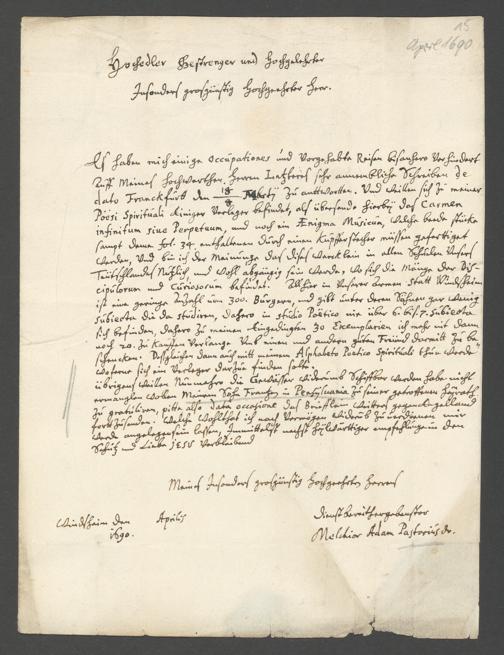 15
April 1690
Hochedler Gestrenger und Hochgelehrter
Insonders grosgünstig Hochgeehrter Herr.
Es haben mich einige occupationes und vorgehabte Reisen besonders verhindert
auff Meines Hochwerthen Herrn Letzteres sehr annembliche Schreiben de
dato Franckfurt den 18/8 zu antwortten. Und weilen sich zu meiner
Poesi Spirituali Keiniger Verleger befindet, als übersende hierbey das Carmen
infinitum sive Perpetuum, und noch ein Ænigma Musicum, welche beede stücke
sampt denen fol. 34 enthaltenen durch einen Kupfferstecher müssen gefertiget
werden, Und bin ich der Meinunge das dises wercklein in allen Schulen Unsers
Teütschlandes Nützlich und wohl abgängig sein werde, wo sich die Mänge der Dis-
cipulorum und Curiosorum befindet. Alhier in Unserer armen Statt Windsheim
ist eine geringe Anzahl von 300. Bürgern, und gibt unter deren Söhnen gar wenig
subiecta die da studiren, dahero in studio Poetico nie über 6. biß 7. subiecta
sich befinden, dahero zu meinen Exemplarien ich mehr nit dann
noch 20. zu Kauffen Verlange Umb einen und andern guten Freund darmit zu be-
schencken. Dessgleichen dann auch mit meinem Alphabeto Poetico Spirituali thün werde
woferne sich ein Verleger darzue finden solte.
übrigens weilen Nünmehro die Gewässer widerumb Schiffbar werden habe nicht
ermanglen wollen Meinem Sohn Frantzen in Pensylvania zu seiner getroffenen Heyrath
zu gratuliren, pitte also data occasione das Brieflein
fortzusenden. Welche Wohlthat ich nach Vermögen widerumb zu verdienen mir
werde angelegen sein lassen, Immittelst nechst Empfehlung in den
Schutz und Liebe JESU Verbleibend
Meines Insonders grosgünstig Hochgeehrten Herrens
Windsheim den Aprilis
1690.
Dienstbereithergebenster
Melchior Adam Pastorius Dr.